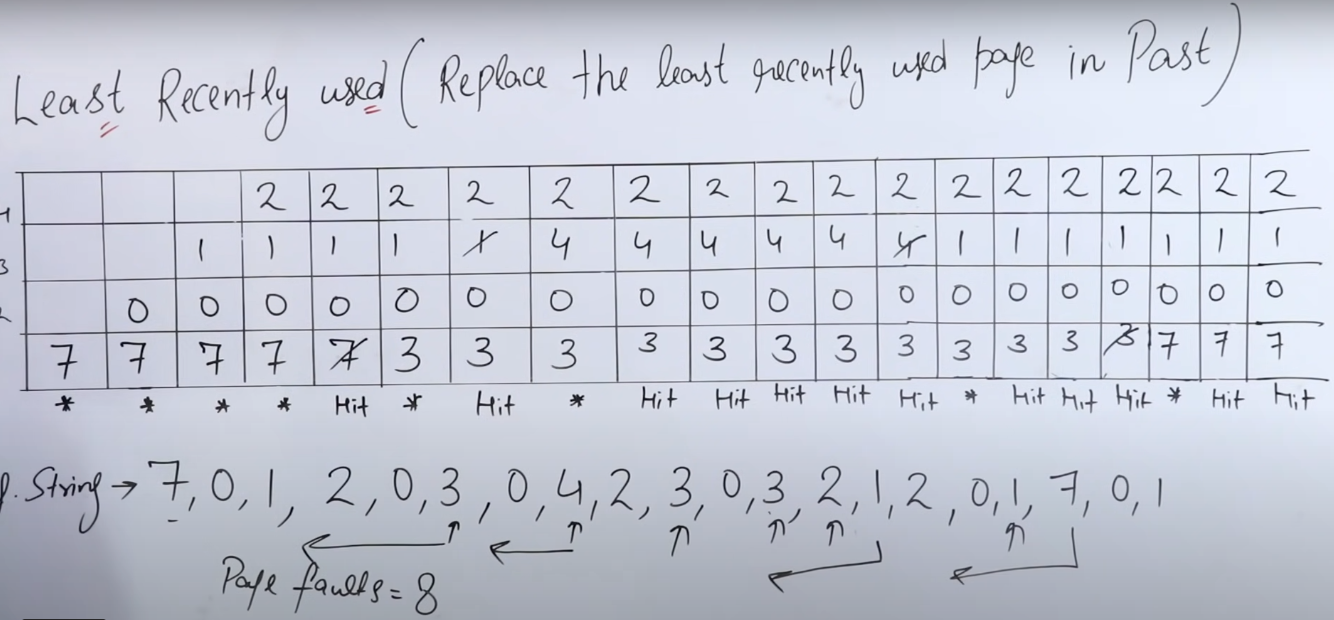 Least Recently used (Replace the least recently used page in Past)
2 2 2 2 2 2 2 2 2 2 2 2 2 2 2 2 2
4
1 1 1 1 4 4 4 4 4 4 1 1 1 1 1 1 1
3
1
0 0 0 0 0 0 0 0 0 0 0 0 0 0 0 0 0 0 0
2
7 7 7 7 7 3 3 3 3 3 3 3 3 3 3 3 3 7 7 7
* * * * Hit * Hit * Hit Hit Hit Hit Hit * Hit Hit Hit * Hit Hit
String → 7, 0, 1, 2, 0, 3, 0, 4, 2, 3, 0, 3, 2, 1, 2, 0, 1, 7, 0, 1
Page faults = 8